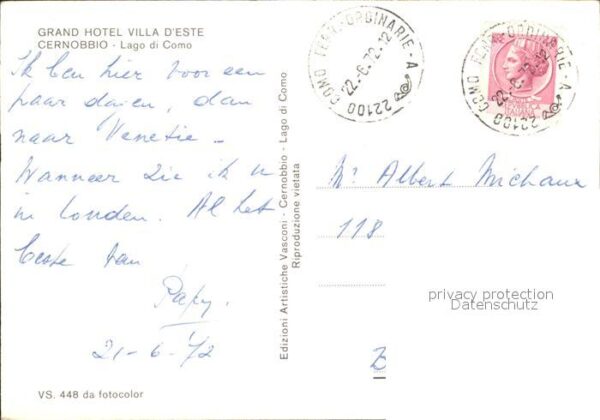 GRAND HOTEL VILLA D'ESTE
CERNOBBIO - Lago di Como
Ik ben hier voor een
paar dagen, dan
naar Venetie -
Wanneer zie ik u
in Londen. Al het
beste van
Papy.
21-6-72
VS. 448 da fotocolor
Edizioni Artistiche Vasconi - Cernobbio - Lago di Como
Riproduzione vietata
22100 COMO FERR.-ORDINARIE - A
22.-6.72-12
22100 COMO FERR.-ORDINARIE - A
Mr. Albert Michaux
118
B
privacy protection
Datenschutz